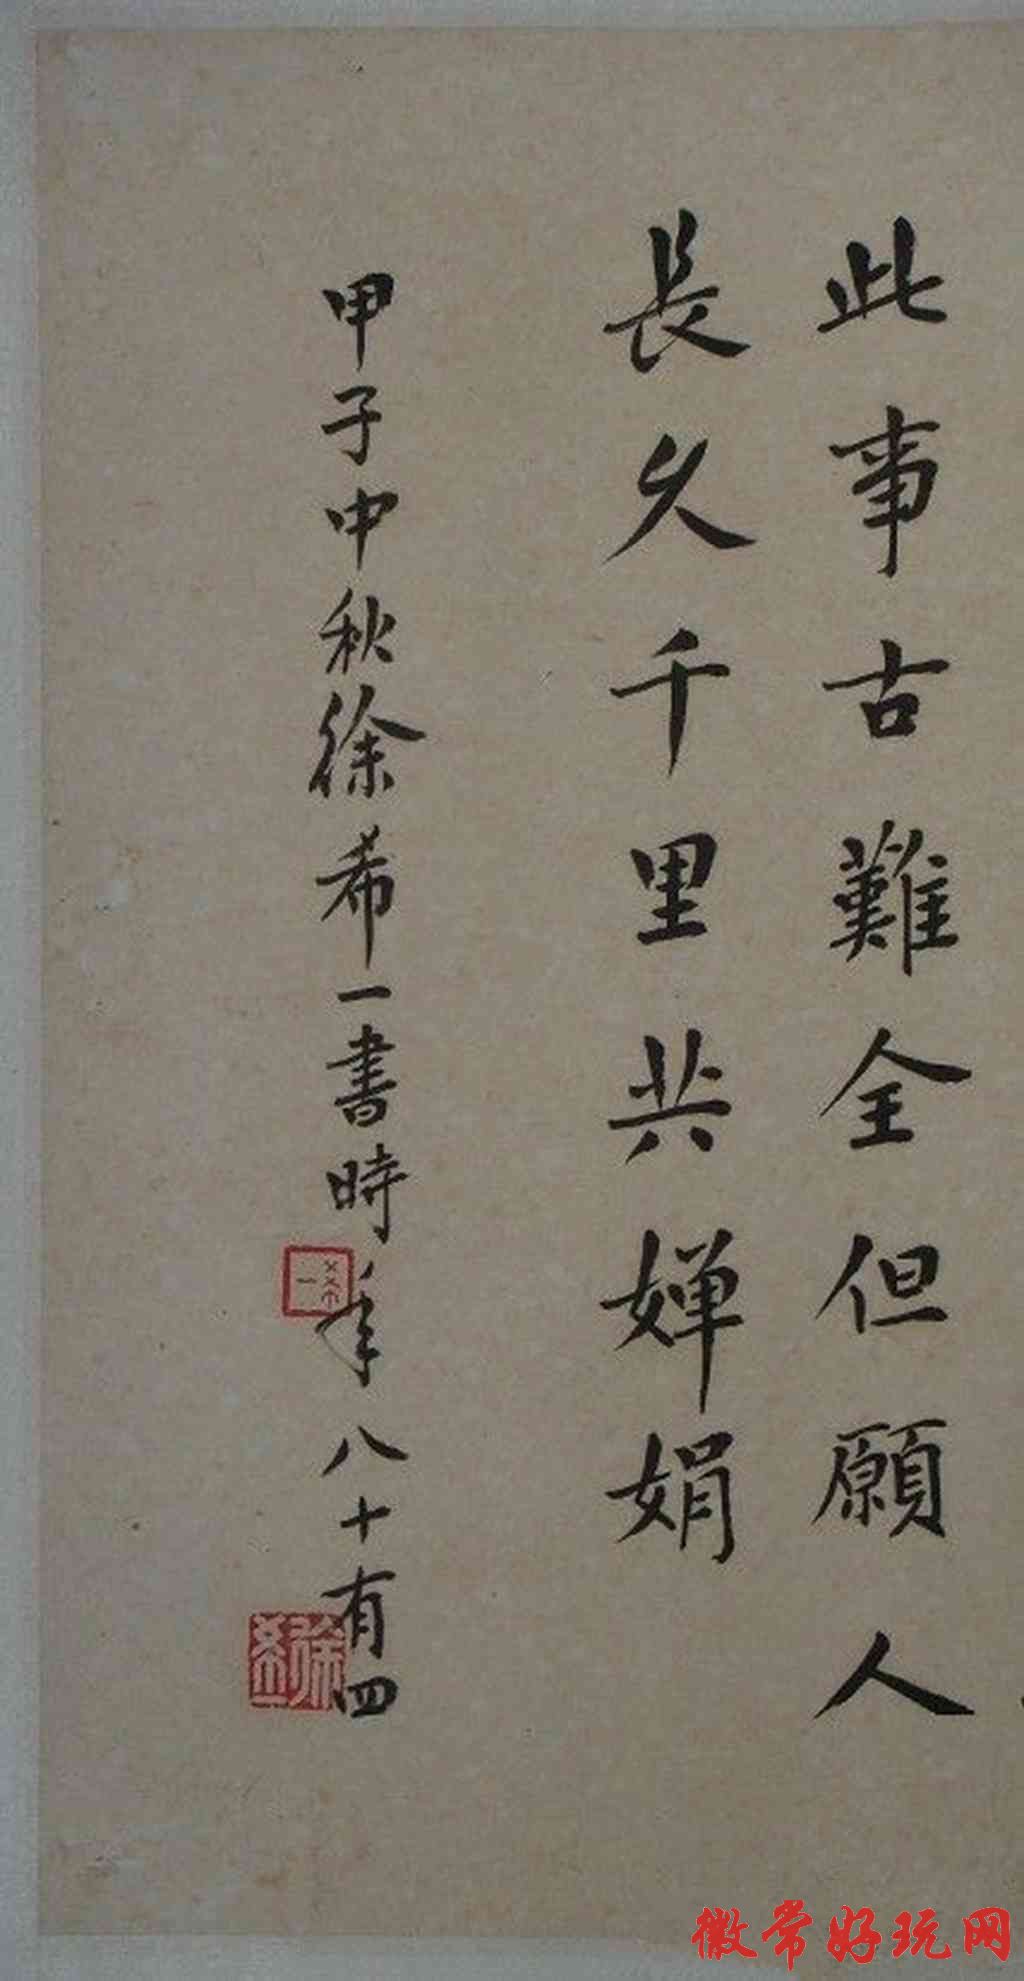 此事古難全但願人
長久千里共嬋娟
甲子中秋徐希一書時年八十有四
希一
徐希一
徽常好玩网